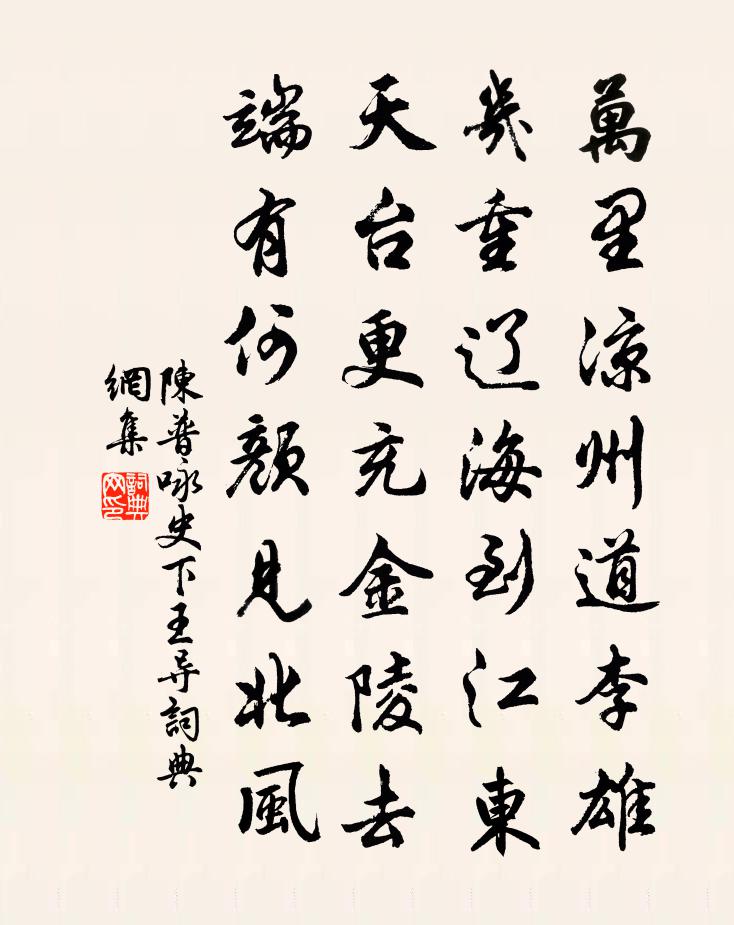 萬里涼州道李雄
幾重辽海到江東
天台更充金陵去
端有何顔見北風
陳普咏史下王导詞典
網集
詞典
网印